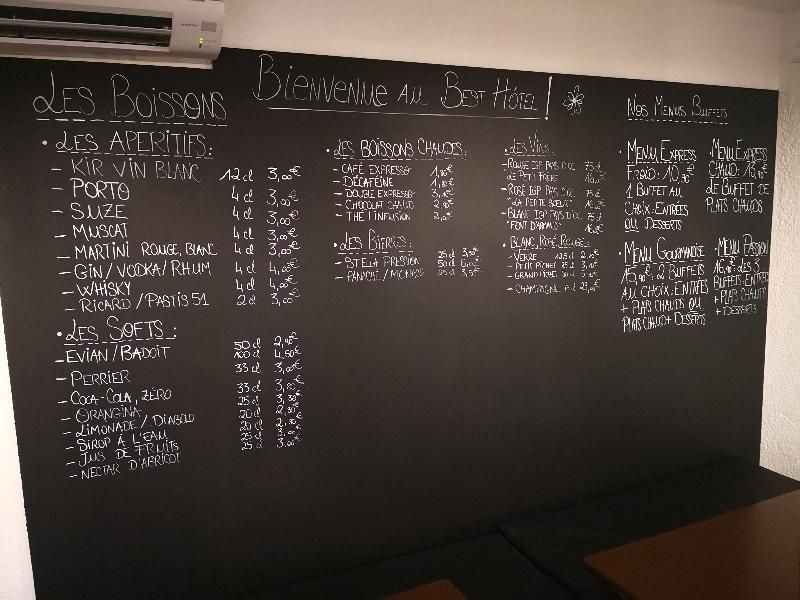 Bienvenue au Best Hôtel !
Les Boissons
• Les Aperitifs :
– Kir Vin Blanc 12 cl 3,00€
– Porto 4 cl 3,00€
– Suze 4 cl 3,00€
– Muscat 4 cl 3,00€
– Martini Rouge, Blanc 4 cl 3,00€
– Gin/Vodka/Rhum 4 cl 4,00€
– Whisky 4 cl 4,00€
– Ricard/Pastis 51 2 cl 3,00€
• Les Softs :
– Evian/Badoit 50 cl 2,90€
100 cl 4,50€
– Perrier 33 cl
– Coca-Cola, Zéro 33 cl
– Orangina 25 cl
– Limonade/Diabolo 20 cl
– Sirop à l'eau 20 cl
– Jus de Fruits 25 cl
– Nectar d'abricot 25 cl 3,00€
• Les Boissons Chaudes :
– Café Expresso
– Décaféiné
– Double Expresso
– Chocolat Chaud
– Thé Infusion
• Les Bières :
– Stella Pression 25 cl
50 cl
– Panaché/Monaco 25 cl
• Les Vins :
– Rouge IGP Pays d'Oc 75 cl
"Le Petit Frère"
– Rosé IGP Pays d'Oc 75 cl
"La Petite Soeur"
– Blanc IGP Pays d'Oc 75 cl
• Blanc, Rosé, Rouge :
– Verre 12,5 cl
– Petit Pichet
– Grand Pichet
– Champagne
Nos Menus Buffets
• Menu Express
Froid : 10,90€
1 Buffet au
choix : Entrées
ou Desserts
Menu Express
Chaud : 13,90€
Le Buffet de
Plats Chauds
• Menu Gourmandise
15,90€ : 2 Buffets
au choix : Entrées
+ Plats Chauds ou
Plats Chaud + Desserts
• Menu Passion
Les 3
Buffets : Entrées
+ Plats Chauds
+ Desserts